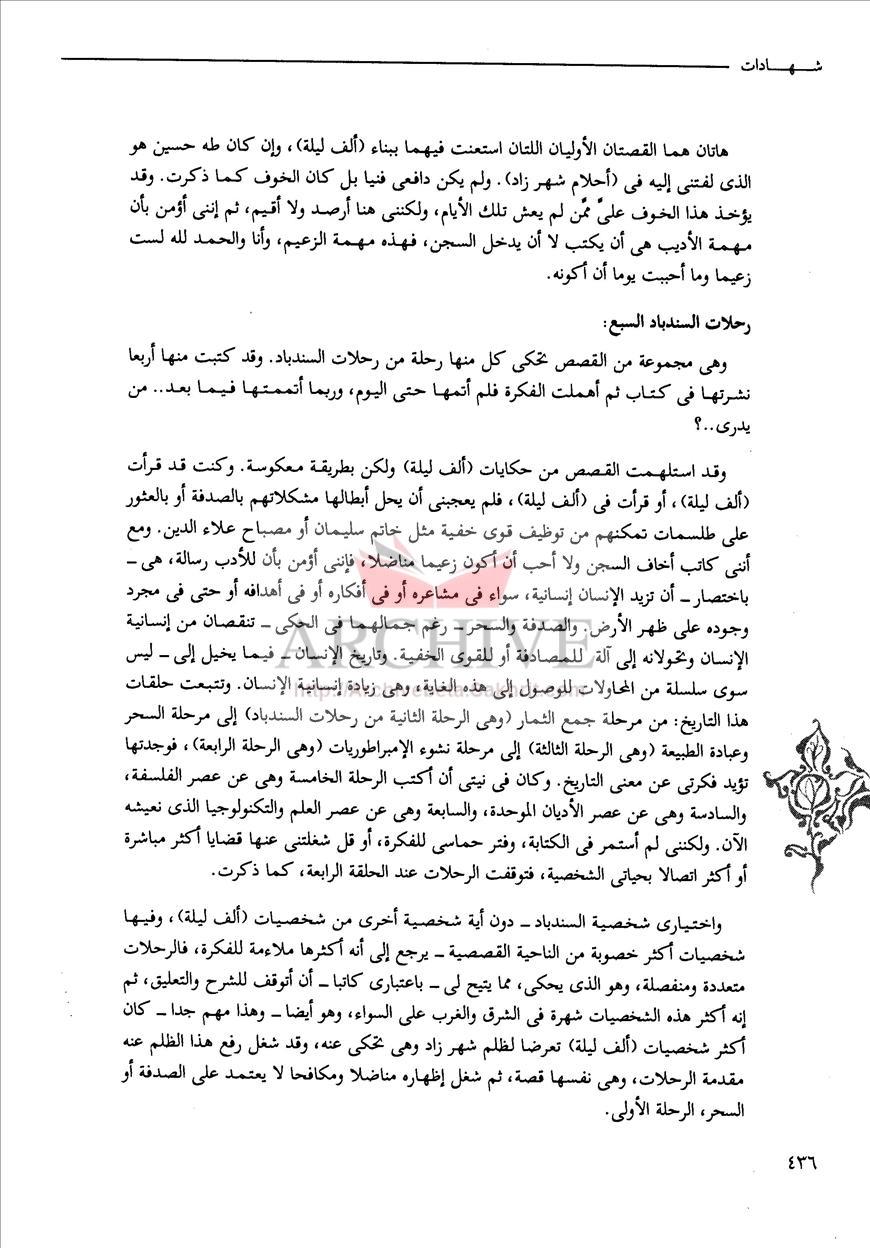 شــهــادات
هاتان هما القصتان الأوليان اللتان استعنت فيهما ببناء (ألف ليلة)، وإن كان طه حسين هو
الذى لفتنى إليه فى (أحلام شهر زاد). ولم يكن دافعى فنيا بل كان الخوف كما ذكرت. وقد
يؤخذ هذا الخوف علىّ ممَّن لم يعش تلك الأيام، ولكننى هنا أرصد ولا أقيم، ثم إننى أؤمن بأن
مهمة الأديب هى أن يكتب لا أن يدخل السجن، فهذه مهمة الزعيم، وأنا والحمد لله لست
زعيما وما أحببت يوما أن أكونه.
رحلات السندباد السبع:
وهى مجموعة من القصص تحكى كل منها رحلة من رحلات السندباد. وقد كتبت منها أربعا
نشرتها فى كتاب ثم أهملت الفكرة فلم أتمها حتى اليوم، وربما أتممتها فيما بعد.. من
يدرى..؟
وقد استلهمت القصص من حكايات (ألف ليلة) ولكن بطريقة معكوسة. وكنت قد قرأت
(ألف ليلة)، أو قرأت فى (ألف ليلة)، فلم يعجبنى أن يحل أبطالها مشكلاتهم بالصدفة أو بالعثور
على طلسمات تمكنهم من توظيف قوى خفية مثل خاتم سليمان أو مصباح علاء الدين. ومع
أننى كاتب أخاف السجن ولا أحب أن أكون زعيما مناضلا، فإننى أؤمن بأن للأدب رسالة، هى ــ
باختصار ــ أن تزيد الإنسان إنسانية، سواء فى مشاعره أو فى أفكاره أو فى أهدافه أو حتى فى مجرد
وجوده على ظهر الأرض. والصدفة والسحر ــ رغم جمالهما فى الحكى ــ تنقصان من إنسانية
الإنسان وتحولانه إلى آلة للمصادفة أو للقوى الخفية. وتاريخ الإنسان ــ فيما يخيل إلى ــ ليس
سوى سلسلة من المحاولات للوصول إلى هذه الغاية، وهى زيادة إنسانية الإنسان. وتتبعت حلقات
هذا التاريخ: من مرحلة جمع الثمار (وهى الرحلة الثانية من رحلات السندباد) إلى مرحلة السحر
وعبادة الطبيعة (وهى الرحلة الثالثة) إلى مرحلة نشوء الإمبراطوريات (وهى الرحلة الرابعة)، فوجدتها
تؤيد فكرتى عن معنى التاريخ. وكان فى نيتى أن أكتب الرحلة الخامسة وهى عن عصر الفلسفة،
والسادسة وهى عن عصر الأديان الموحدة، والسابعة وهى عن عصر العلم والتكنولوجيا الذى نعيشه
الآن. ولكننى لم أستمر فى الكتابة، وفتر حماسى للفكرة، أو قل شغلتنى عنها قضايا أكثر مباشرة
أو أكثر اتصالا بحياتى الشخصية، فتوقفت الرحلات عند الحلقة الرابعة، كما ذكرت.
واختيارى شخصية السندباد ــ دون أية شخصية أخرى من شخصيات (ألف ليلة)، وفيها
شخصيات أكثر خصوبة من الناحية القصصية ــ يرجع إلى أنه أكثرها ملاءمة للفكرة، فالرحلات
متعددة ومنفصلة، وهو الذى يحكى، مما يتيح لى ــ باعتبارى كاتبا ــ أن أتوقف للشرح والتعليق، ثم
إنه أكثر هذه الشخصيات شهرة فى الشرق والغرب على السواء، وهو أيضا ــ وهذا مهم جدا ــ كان
أكثر شخصيات (ألف ليلة) تعرضا لظلم شهر زاد وهى تحكى عنه، وقد شغل رفع هذا الظلم عنه
مقدمة الرحلات، وهى نفسها قصة، ثم شغل إظهاره مناضلا ومكافحا لا يعتمد على الصدفة أو
السحر، الرحلة الأولى.
٤٣٦
ARCHIVE